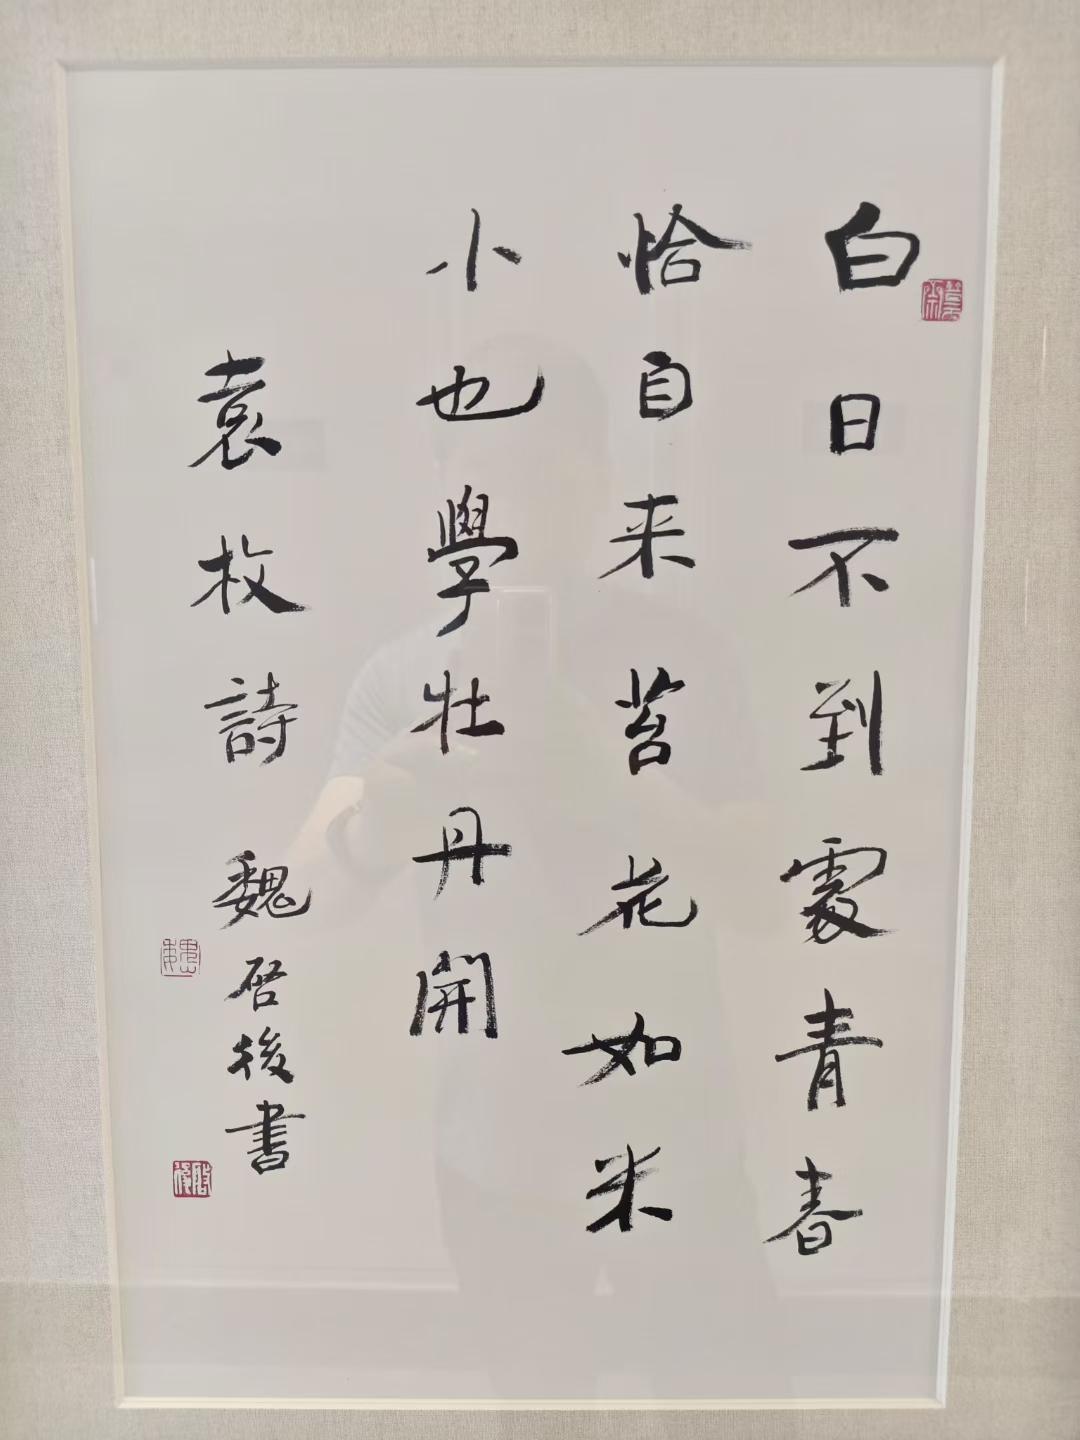 白日不到處青春
恰自来苔花如米
小也學牡丹開
袁枚詩 魏启後書